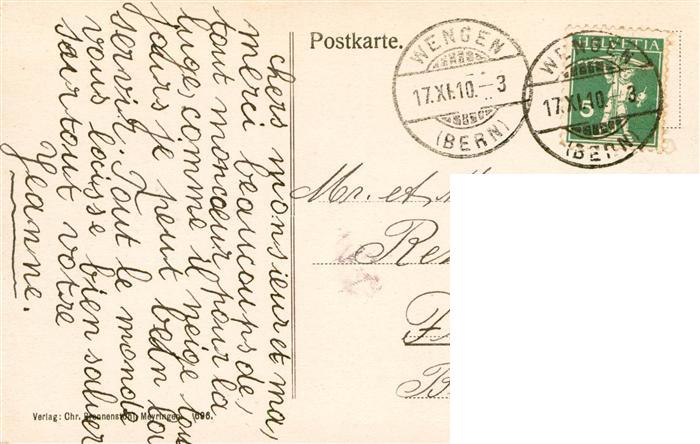 Postkarte.
WENGEN
17.XI.10.-3
(BERN)
WENGEN
17.XI.10.-3
(BERN)
HELVETIA
5
chers monsieur et ma,
merci beaucoups de,
tout mon cœur pour la
luge, comme il neige tou
jours je peut bein la
servir. Tout le monde
vous laisse bien saluer
surtout votre
Jeanne.
Mr. et
Verlag: Chr. Brennenstuhl, Meyringen 696.